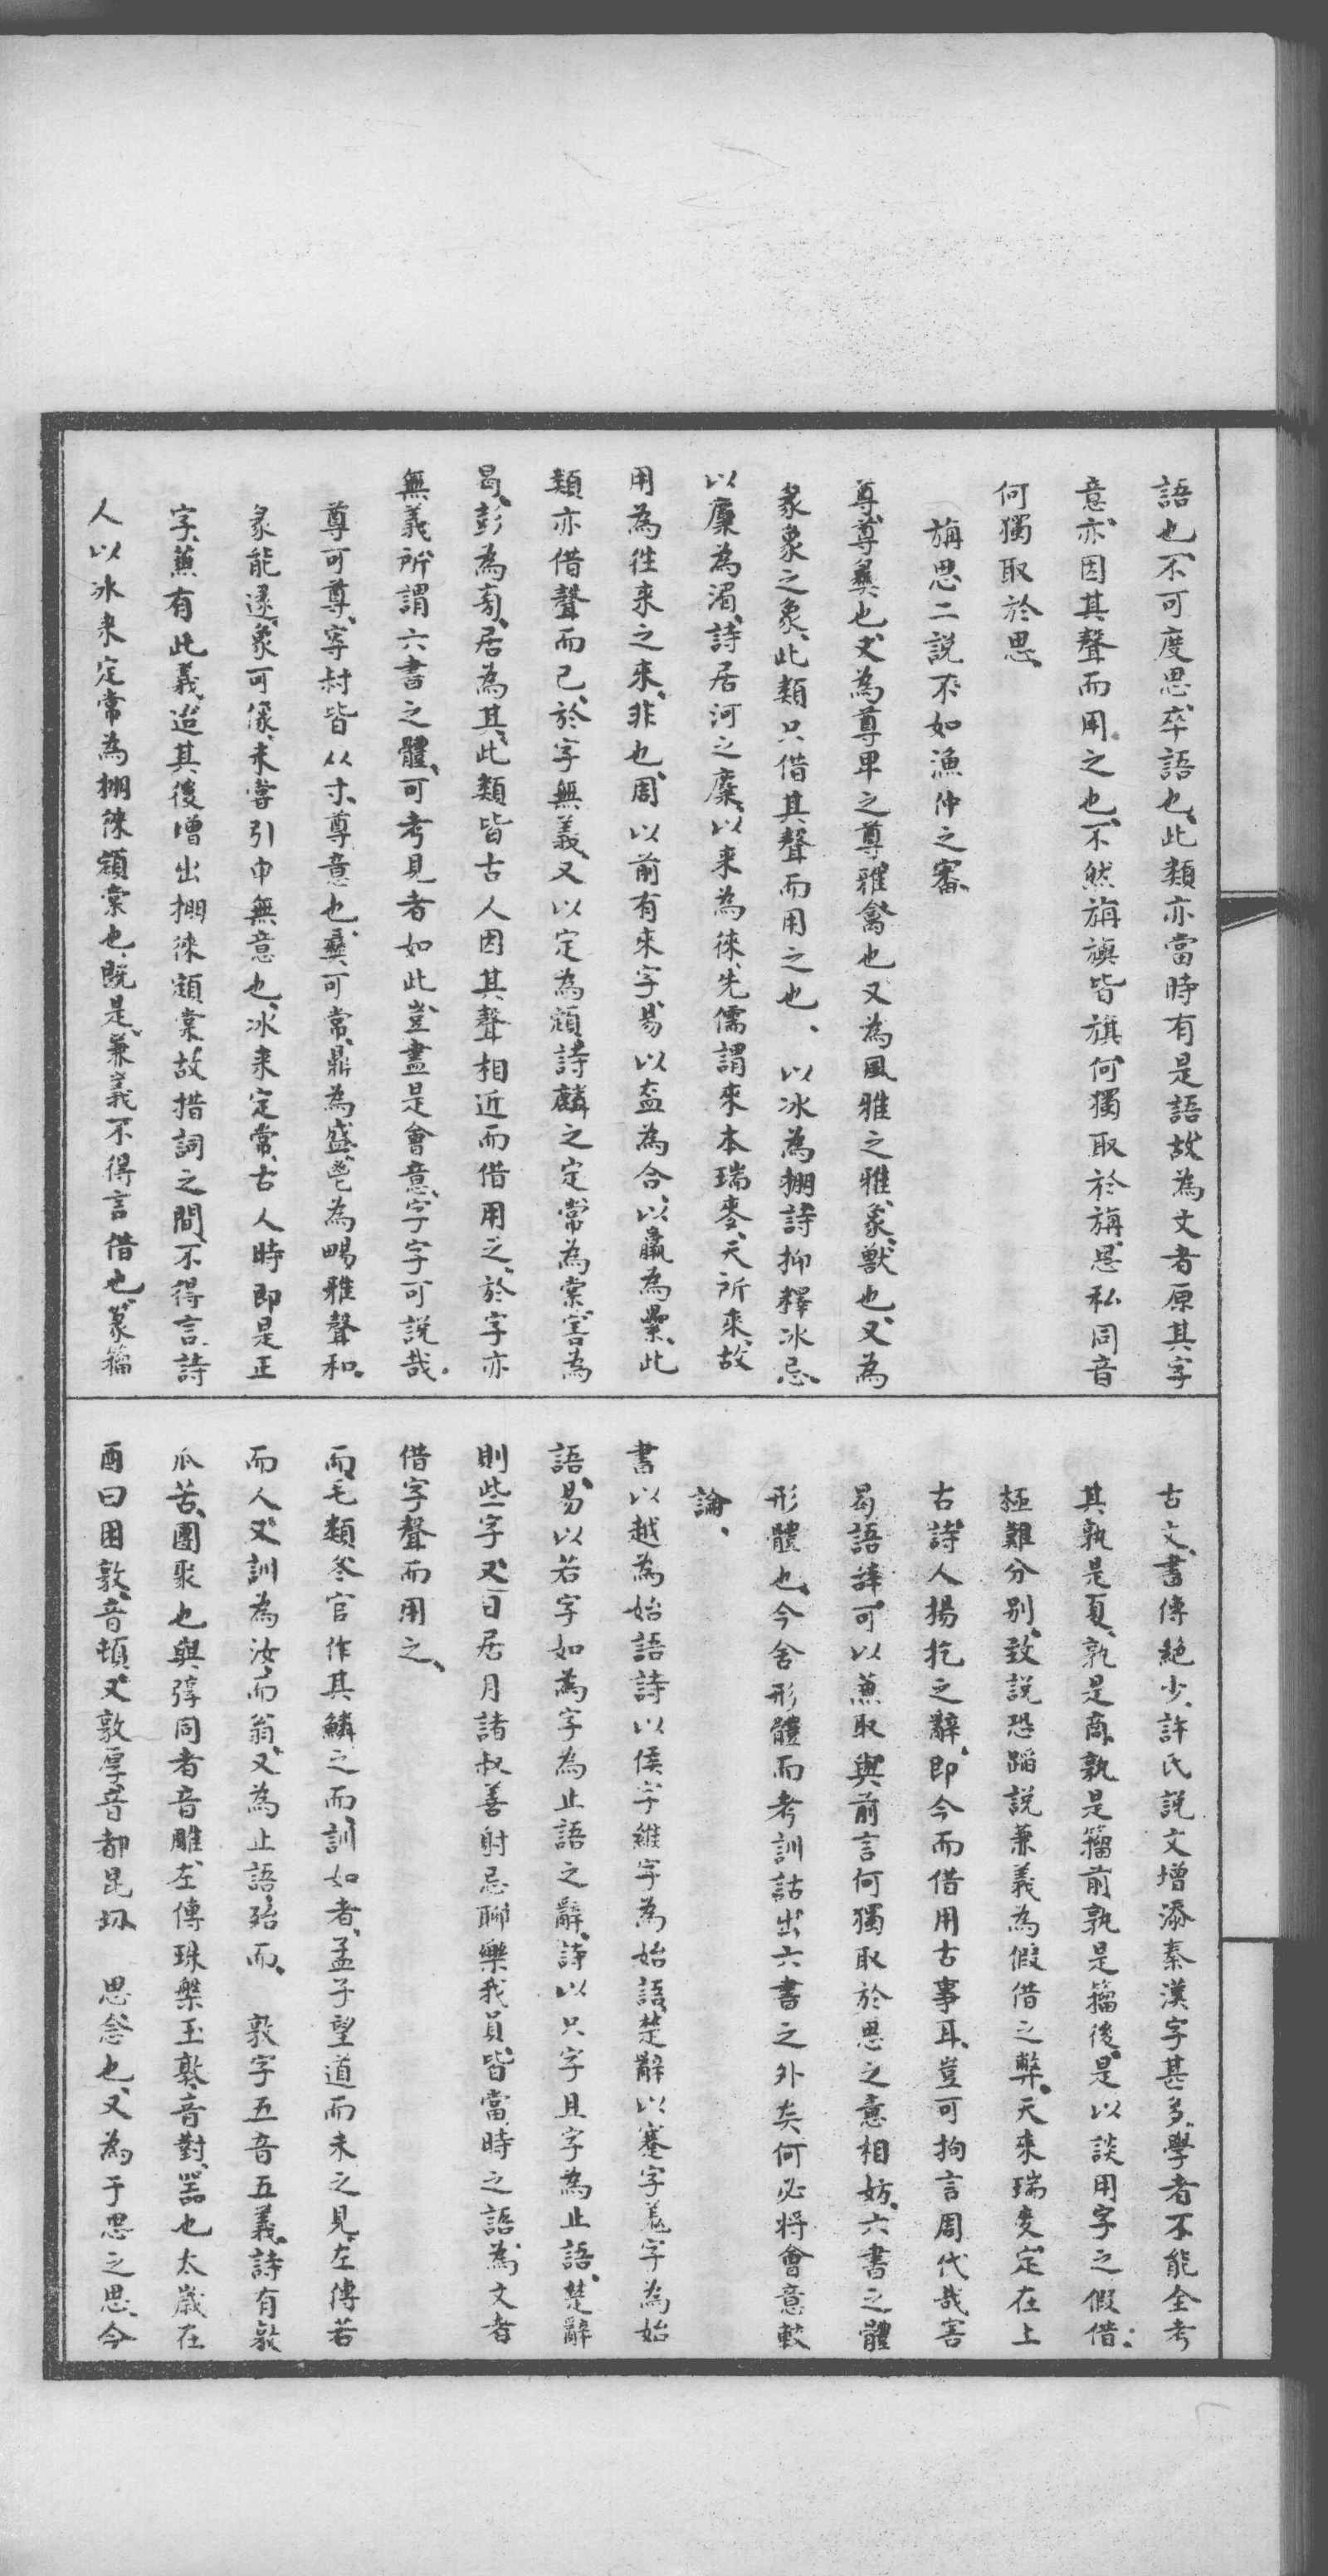 語也、不可度思、卒語也、此類亦當時有是語、故為文者原其字
意、亦因其聲而用之也、不然旃旟皆旗、何獨取於旃、思私同音
何獨取於思、
旃思二説不如漁仲之審、
尊、尊彝也、又為尊卑之尊、雅、禽也、又為風雅之雅、象、獸也、又為
彖象之象、此類只借其聲而用之也、以冰為掤、詩抑釋冰忌、
以麋為湄、詩居河之麋、以來為徠、先儒謂來本瑞麥、天所來、故
用為徃來之來、非也、周以前有來字、易以盍為合、以羸為纍、此
類亦借聲而已、於字無義、又以定為頞、詩麟之定、常為棠、害為
曷、彭為旁、居為其、此類皆古人因其聲相近而借用之、於字亦
無義、所謂六書之體、可考見者如此、豈盡是會意、字字可説哉、
尊可尊、字封皆从寸、尊意也、彝可常、鼎為盛、鬯為暢、雅聲和、
彖能遂、象可像、未嘗引巾無意也、冰来定常、古人時即是正
字、蕉有此義、迨其後增出掤徠頞棠、故措詞之間、不得言、詩
人以冰来定常為掤徠頞棠也、既是兼義、不得言借也、篆籀
古文、書傳絶少、許氏説文增添秦漢字甚多、學者不能全考
其孰是夏、孰是商、孰是籀前、孰是籀後、是以談用字之假借、
極難分别、致説恐蹈説兼義為假借之弊、天來瑞麥、定在上
古、詩人揚扢之辭、即今而借用古事耳、豈可拘言周代哉、害
曷語諱、可以蕉取、與前言何獨取於思之意相妨、六書之體
形體也、今舍形體而考訓詁、出六書之外矣、何必將會意較
論、
書以越為始語、詩以侯字維字為始語、楚辭以蹇字羌字為始
語、易以若字如為字為止語之辭、詩以只字且字為止語、楚辭
則些字、又日居月諸、叔善射忌、聊樂我員、皆當時之語、為文者
借字聲而用之、
而、毛類、冬官作其鱗之而、訓如者、孟子望道而未之見、左傳若
而人、又訓為汝、而翁、又為止語、殆而、 敦字五音五義、詩有敦
瓜苦、團聚也、與弴同者音雕、左傳珠槃玉敦、音對、器也、太嵗在
酉曰困敦、音頓、又敦厚、音都昆切 思、念也、又為于思之思、今